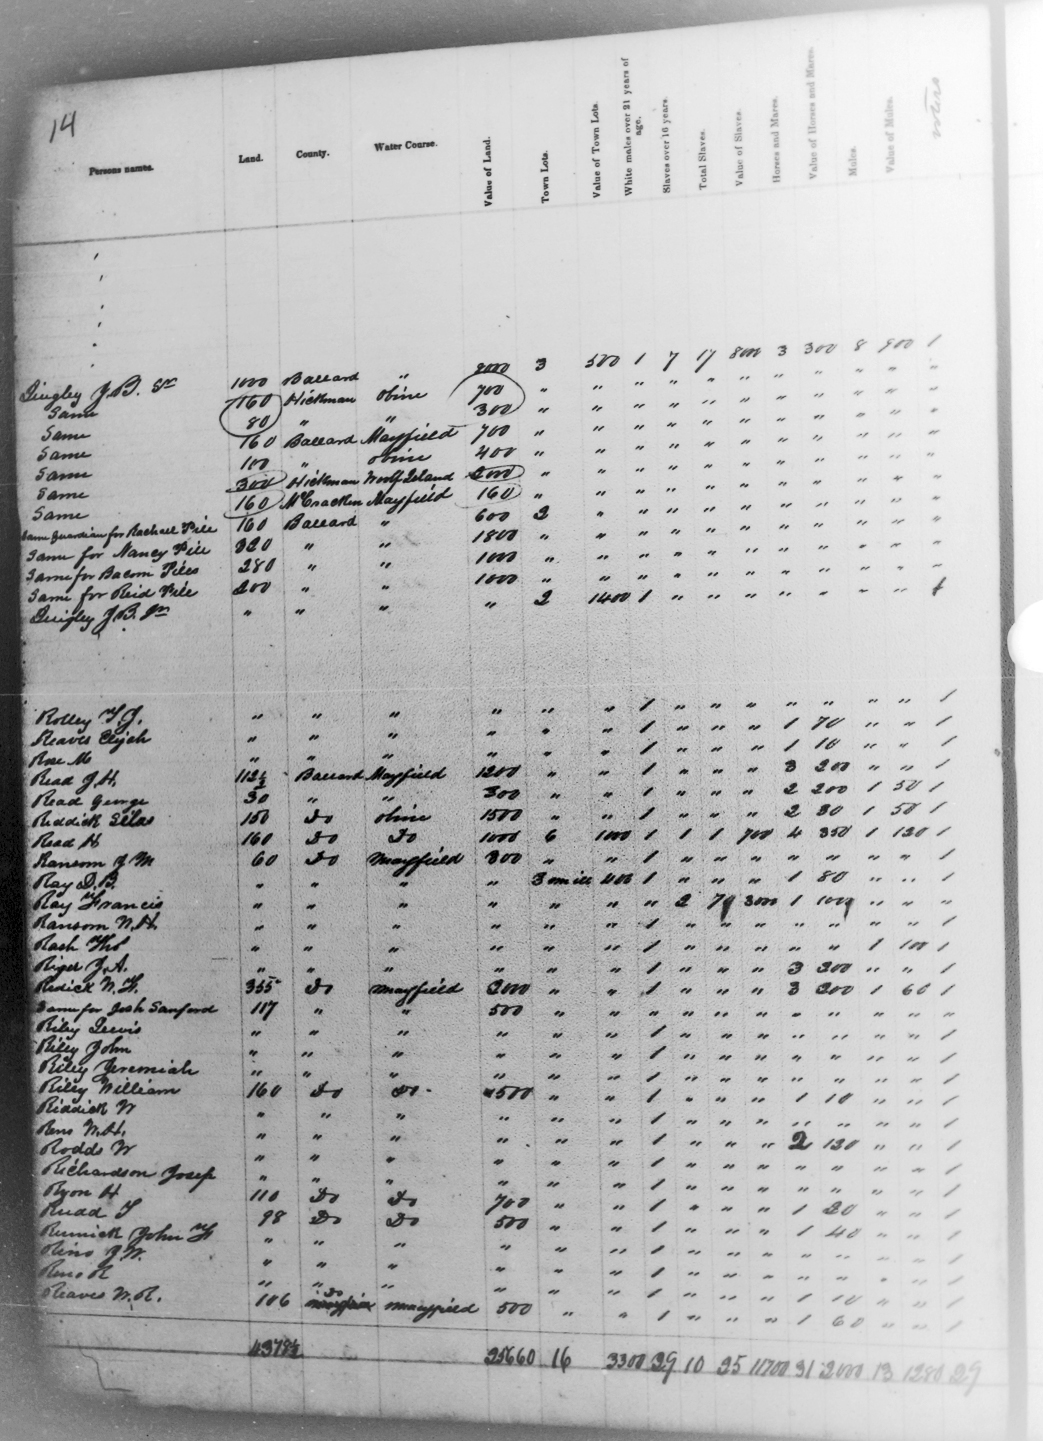 14
Persons names. Land. County. Water Course. Value of Land. Town Lots. Value of Town Lots. White males over 21 years of age. Slaves over 16 years. Total Slaves. Value of Slaves. Horses and Mares. Value of Horses and Mares. Mules. Value of Mules. voters
Quigley J. B. Sr 1000 Ballard " 8000 3 500 1 7 17 8000 3 300 8 800 1
Same 160 Hickman obine 700 " " " " " " " " " " "
Same 80 " " 300 " " " " " " " " " " "
Same 160 Ballard Mayfield 700 " " " " " " " " " " "
Same 100 " obine 400 " " " " " " " " " " "
Same 300 Hickman Woolf Island " " " " " " " " " " "
Same 160 McCracken Mayfield 160 " " " " " " " " " " "
Same Guardian for Rachael Pile 160 Ballard " 600 2 " " " " " " " " " "
Same for Nancy Pile 320 " " 1800 " " " " " " " " " " "
Same for Bacom Piles 280 " " 1000 " " " " " " " " " " "
Same for Reid Pile 200 " " 1000 " " " " " " " " " " "
Quigley J. B. Jr " " " " 2 1400 1 " " " " " " " 1
Rolley T. J. " " " " " " 1 " " " " " " " 1
Reaves Elijah " " " " " " 1 " " " 1 70 " " 1
Rose M " " " " " " 1 " " " 1 10 " " 1
Read J. H. 112½ Ballard Mayfield 1200 " " 1 " " " 3 200 " " 1
Read George 30 " " 300 " " 1 " " " 2 200 1 50 1
Reddick Silas 150 Do obine 1500 " " 1 " " " 2 80 1 50 1
Read H 160 Do Do 1000 6 1000 1 1 1 700 4 350 1 120 1
Ransom J M 60 Do Mayfield 300 " " 1 " " " " " " " 1
Ray D. B. " " " " 3 400 1 " " " 1 80 " " 1
Ray Francis " " " " " " " 2 7 3000 1 100 " " "
Ransom W. H. " " " " " " 1 " " " " " " " 1
Rash Thos " " " " " " 1 " " " " " 1 100 1
J. A. " " " " " " 1 " " " 3 200 " " 1
Redick W. F. 355 Do Mayfield 2000 " " 1 " " " 3 200 1 60 1
Same for Josh Sanford 117 " " 500 " " " " " " " " " " "
Riley Lewis " " " " " " 1 " " " " " " " 1
Riley John " " " " " " 1 " " " " " " " 1
Riley Jeremiah " " " " " " 1 " " " " " " " 1
Riley William 160 Do Do 500 " " 1 " " " 1 10 " " 1
Riddick W " " " " " " 1 " " " " " " " 1
Reno W. H. " " " " " " 1 " " " 2 130 " " 1
Rodds W " " " " " " 1 " " " " " " " 1
Richardson Josep " " " " " " 1 " " " " " " " 1
Ryon H 110 Do Do 700 " " 1 " " " 1 20 " " 1
Rudd T 98 Do Do 500 " " 1 " " " 1 40 " " 1
John F " " " " " " 1 " " " " " " " 1
J. W. " " " " " " 1 " " " " " " " 1
Reno R " " " " " " 1 " " " 1 10 " " 1
Reaves W. R. 106 Do Mayfield 500 " " 1 " " " 1 60 " " 1
25660 16 3300 29 10 25 11700 31 2000 13 1280 29